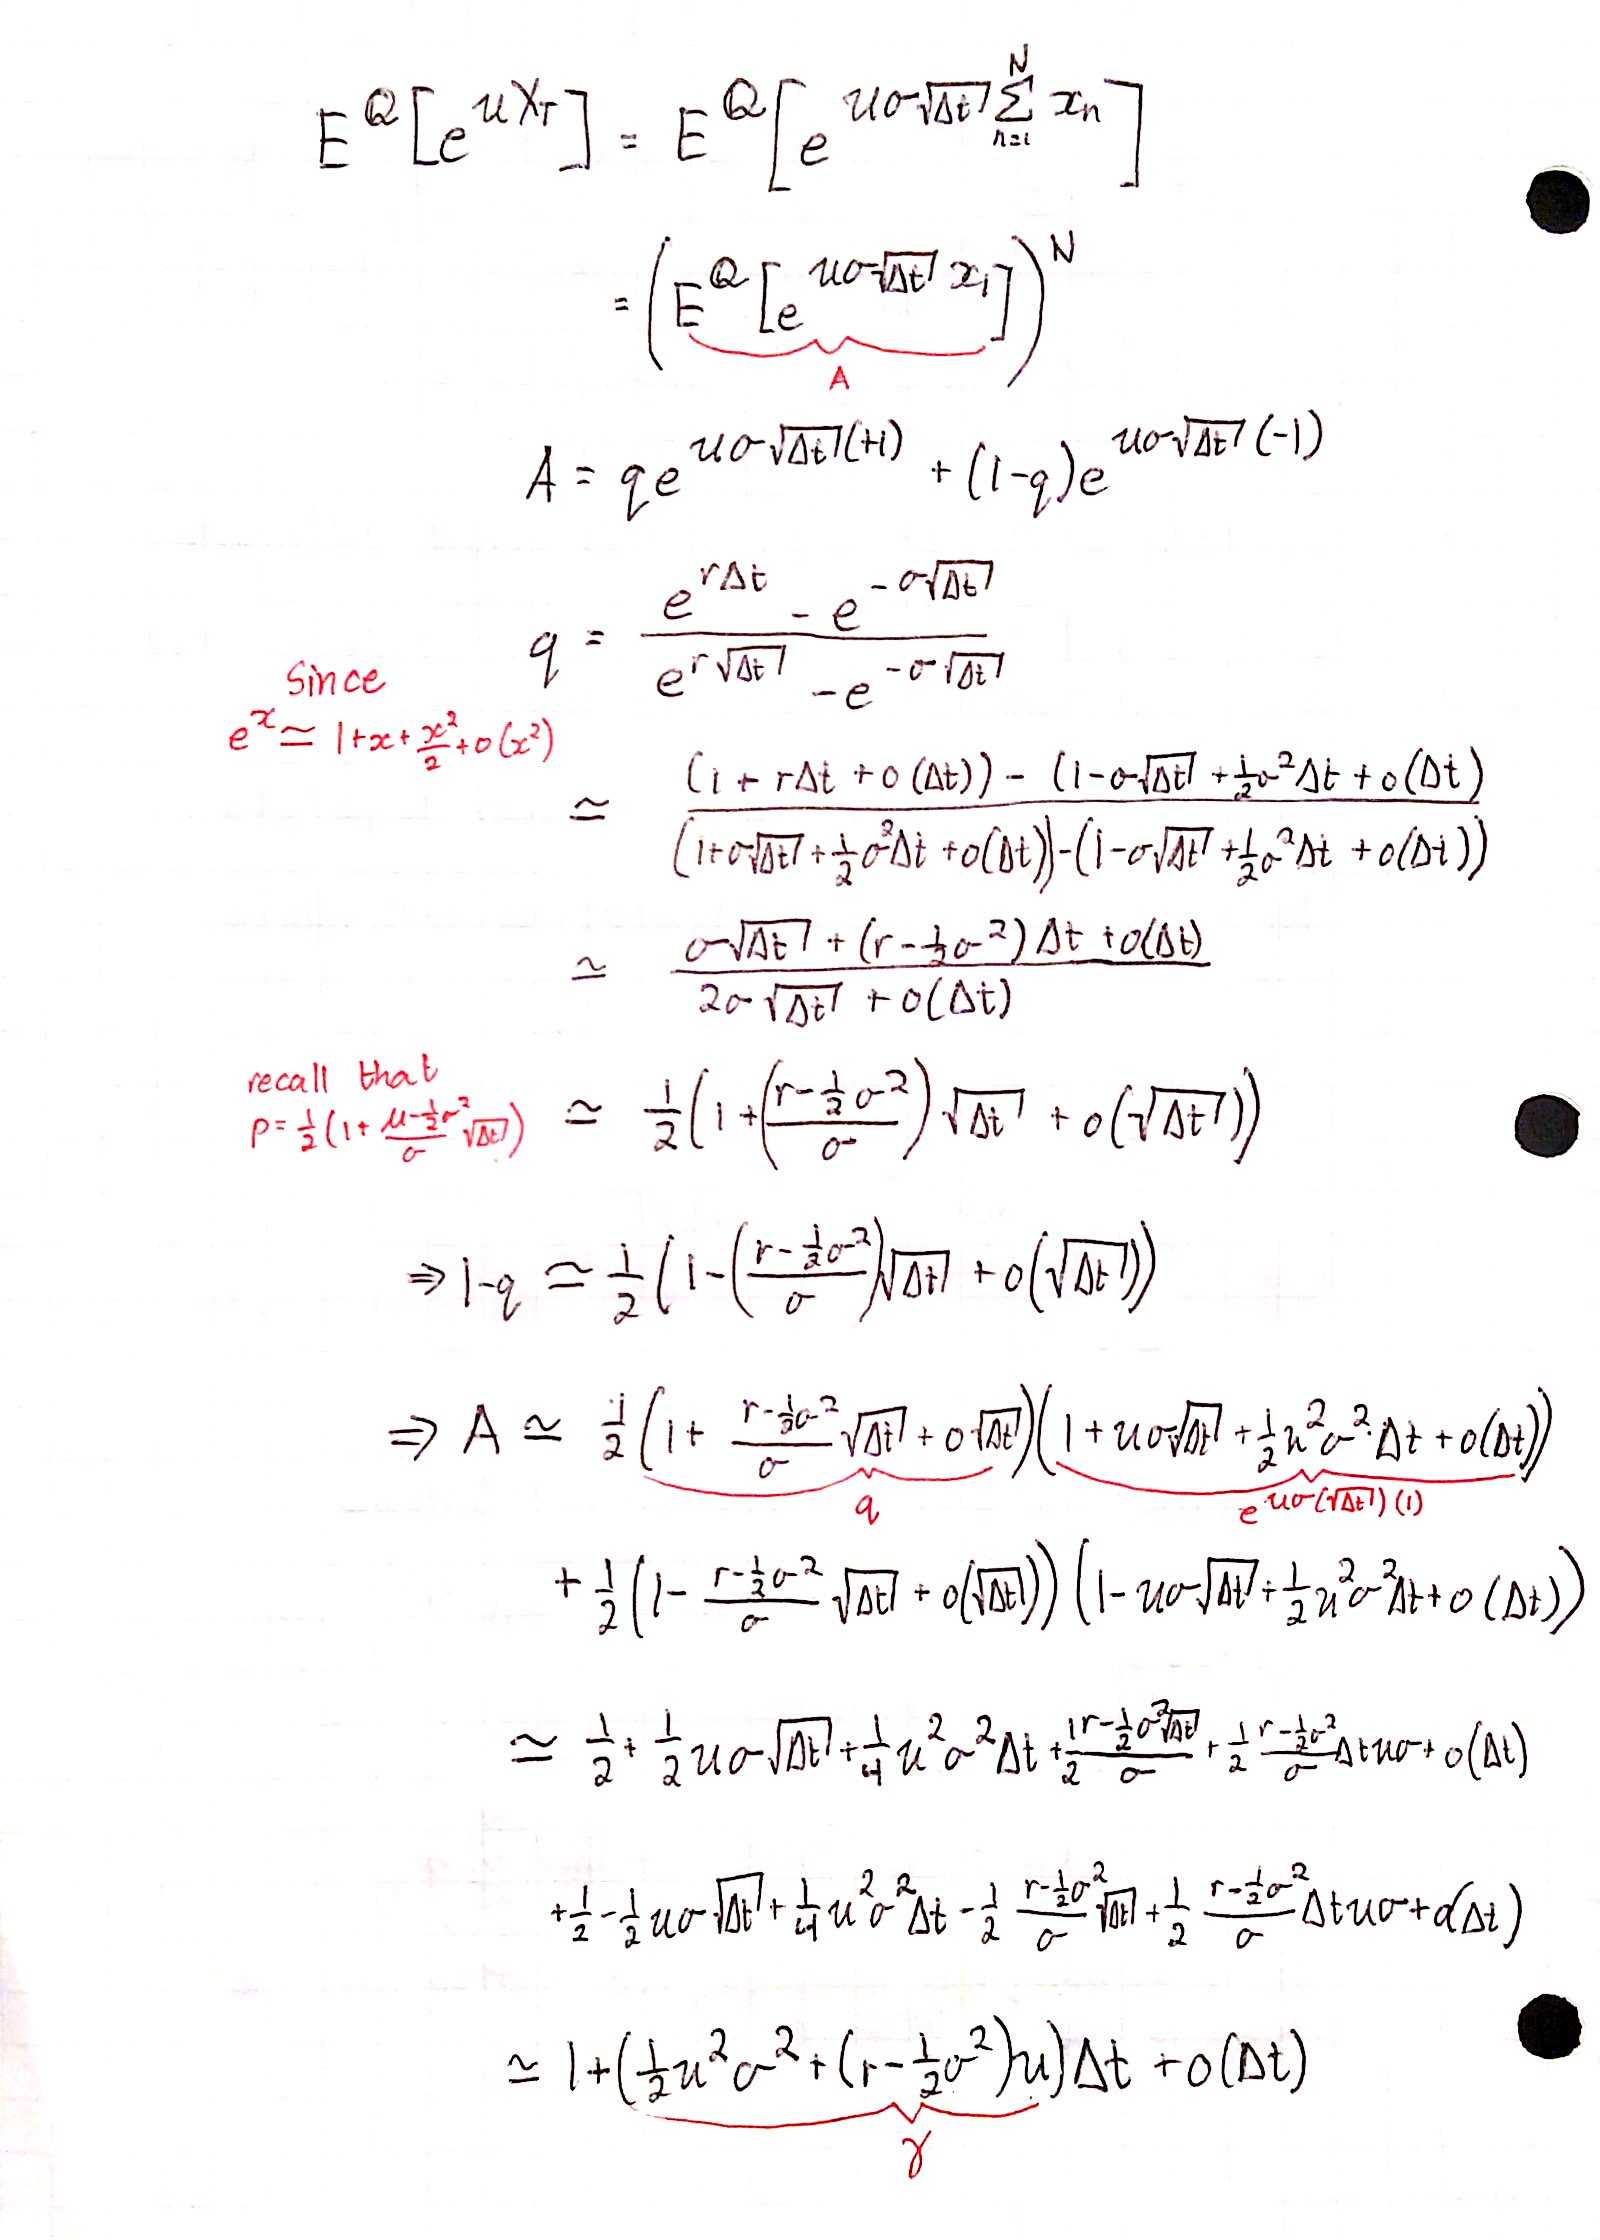 E^Q[e^{uX_T}] = E^Q[e^{uσ√Δt Σ_{n=1}^N x_n}]
= (E^Q[e^{uσ√Δt x_1}])^N
A
A = qe^{uσ√Δt(+1)} + (1-q)e^{uσ√Δt(-1)}
q = (e^{rΔt} - e^{-σ√Δt}) / (e^{r√Δt} - e^{-σ√Δt})
Since
e^x ≃ 1+x+x²/2+o(x²)
≃ ((1 + rΔt + o(Δt)) - (1-σ√Δt + ½σ²Δt + o(Δt)) / ((1+σ√Δt + ½σ²Δt + o(Δt)) - (1-σ√Δt + ½σ²Δt + o(Δt)))
≃ (σ√Δt + (r-½σ²)Δt + o(Δt)) / (2σ√Δt + o(Δt))
recall that
p = ½(1 + (μ-½σ²)/σ √Δt)
≃ ½(1 + ((r-½σ²)/σ)√Δt + o(√Δt))
⇒ 1-q ≃ ½(1-((r-½σ²)/σ)√Δt + o(√Δt))
⇒ A ≃ ½(1+ (r-½σ²)/σ √Δt + o√Δt)(1+uσ√Δt + ½u²σ²·Δt + o(Δt))
q e^{uσ(√Δt)(1)}
+ ½(1- (r-½σ²)/σ √Δt + o(√Δt))(1-uσ√Δt + ½u²σ²Δt + o(Δt))
≃ ½ + ½uσ√Δt + ¼u²σ²Δt + ½ (r-½σ²√Δt)/σ + ½ (r-½σ²)/σ Δtuσ + o(Δt)
+½ - ½uσ√Δt + ¼u²σ²Δt - ½ (r-½σ²)/σ √Δt + ½ (r-½σ²)/σ Δtuσ + o(Δt)
≃ 1+(½u²σ² + (r-½σ²)u)Δt + o(Δt)
γ